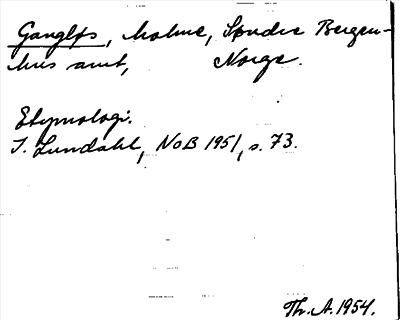 Gangløs, holme, Søndre Bergen-
hus amt, Norge.
Etymologi.
I. Lundahl, NoB 1951, s. 73.
Th. A. 1954.